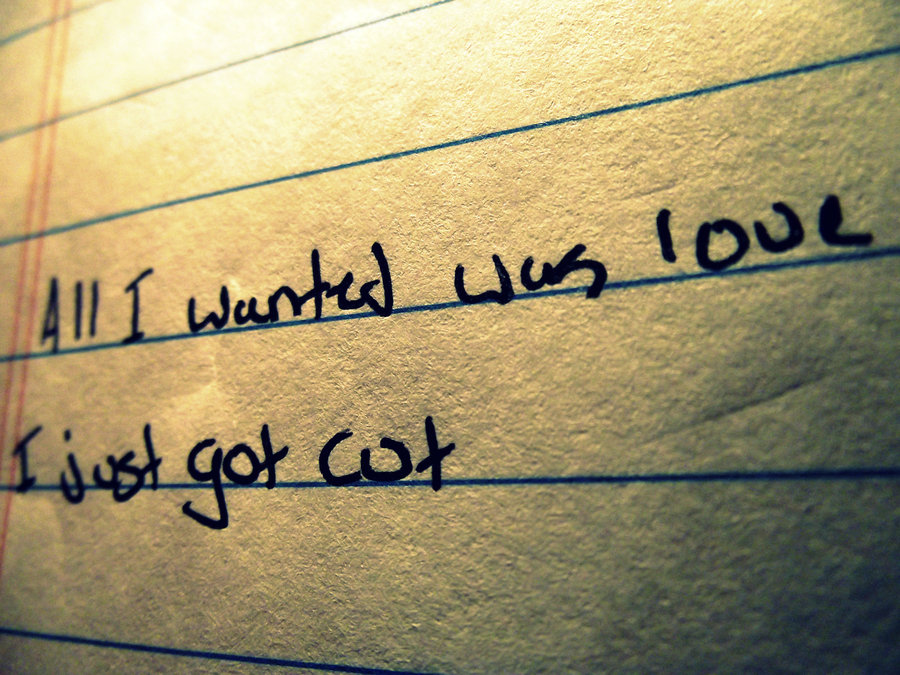 All I wanted was love
I just got cut